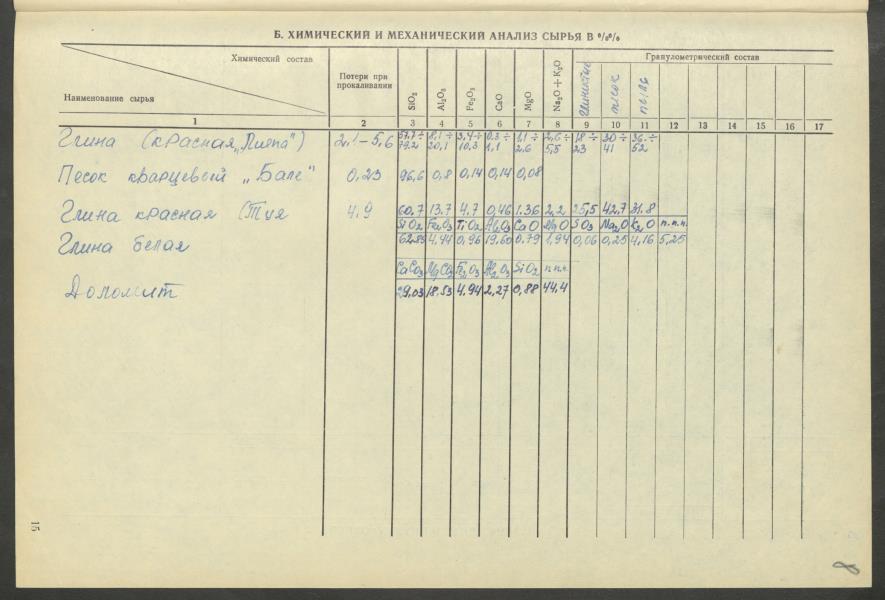 Б. ХИМИЧЕСКИЙ И МЕХАНИЧЕСКИЙ АНАЛИЗ СЫРЬЯ В %%
Химический состав
Наименование сырья
Потери при прокаливании
SiO₂ Al₂O₃ Fe₂O₃ CaO MgO Na₂O + K₂O
Гранулометрический состав
песок
1 2 3 4 5 6 7 8 9 10 11 12 13 14 15 16 17
Глина (красная „Лиепа") 2,1–5,6 8,1÷ 3,4÷ 0,3÷ 1,1÷ 2,6÷ 18÷ 30÷ 36÷
79.2 20,1 10,3 1,1 2.6 5,5 23 41 52
Песок кварцевый „Бале" 0,23 96,6 0,8 0,14 0,14 0,08
Глина красная (Туя 4.9 60,7 13.7 4.7 0,46 1.36 2,2 25,5 42,7 31.8
SiO₂ Fe₂O₃ TiO₂ Al₂O₃ CaO MgO SO₃ Na₂O K₂O п.п.п.
Глина белая 4.44 0,96 19.60 0.79 1,94 0,06 0,25 4,16 5,25
CaCO₃ MgCO₃ Fe₂O₃ Al₂O₃ SiO₂ п.п.п.
Доломит 29,03 18.53 4.94 2,27 0,88 44.4
15
8